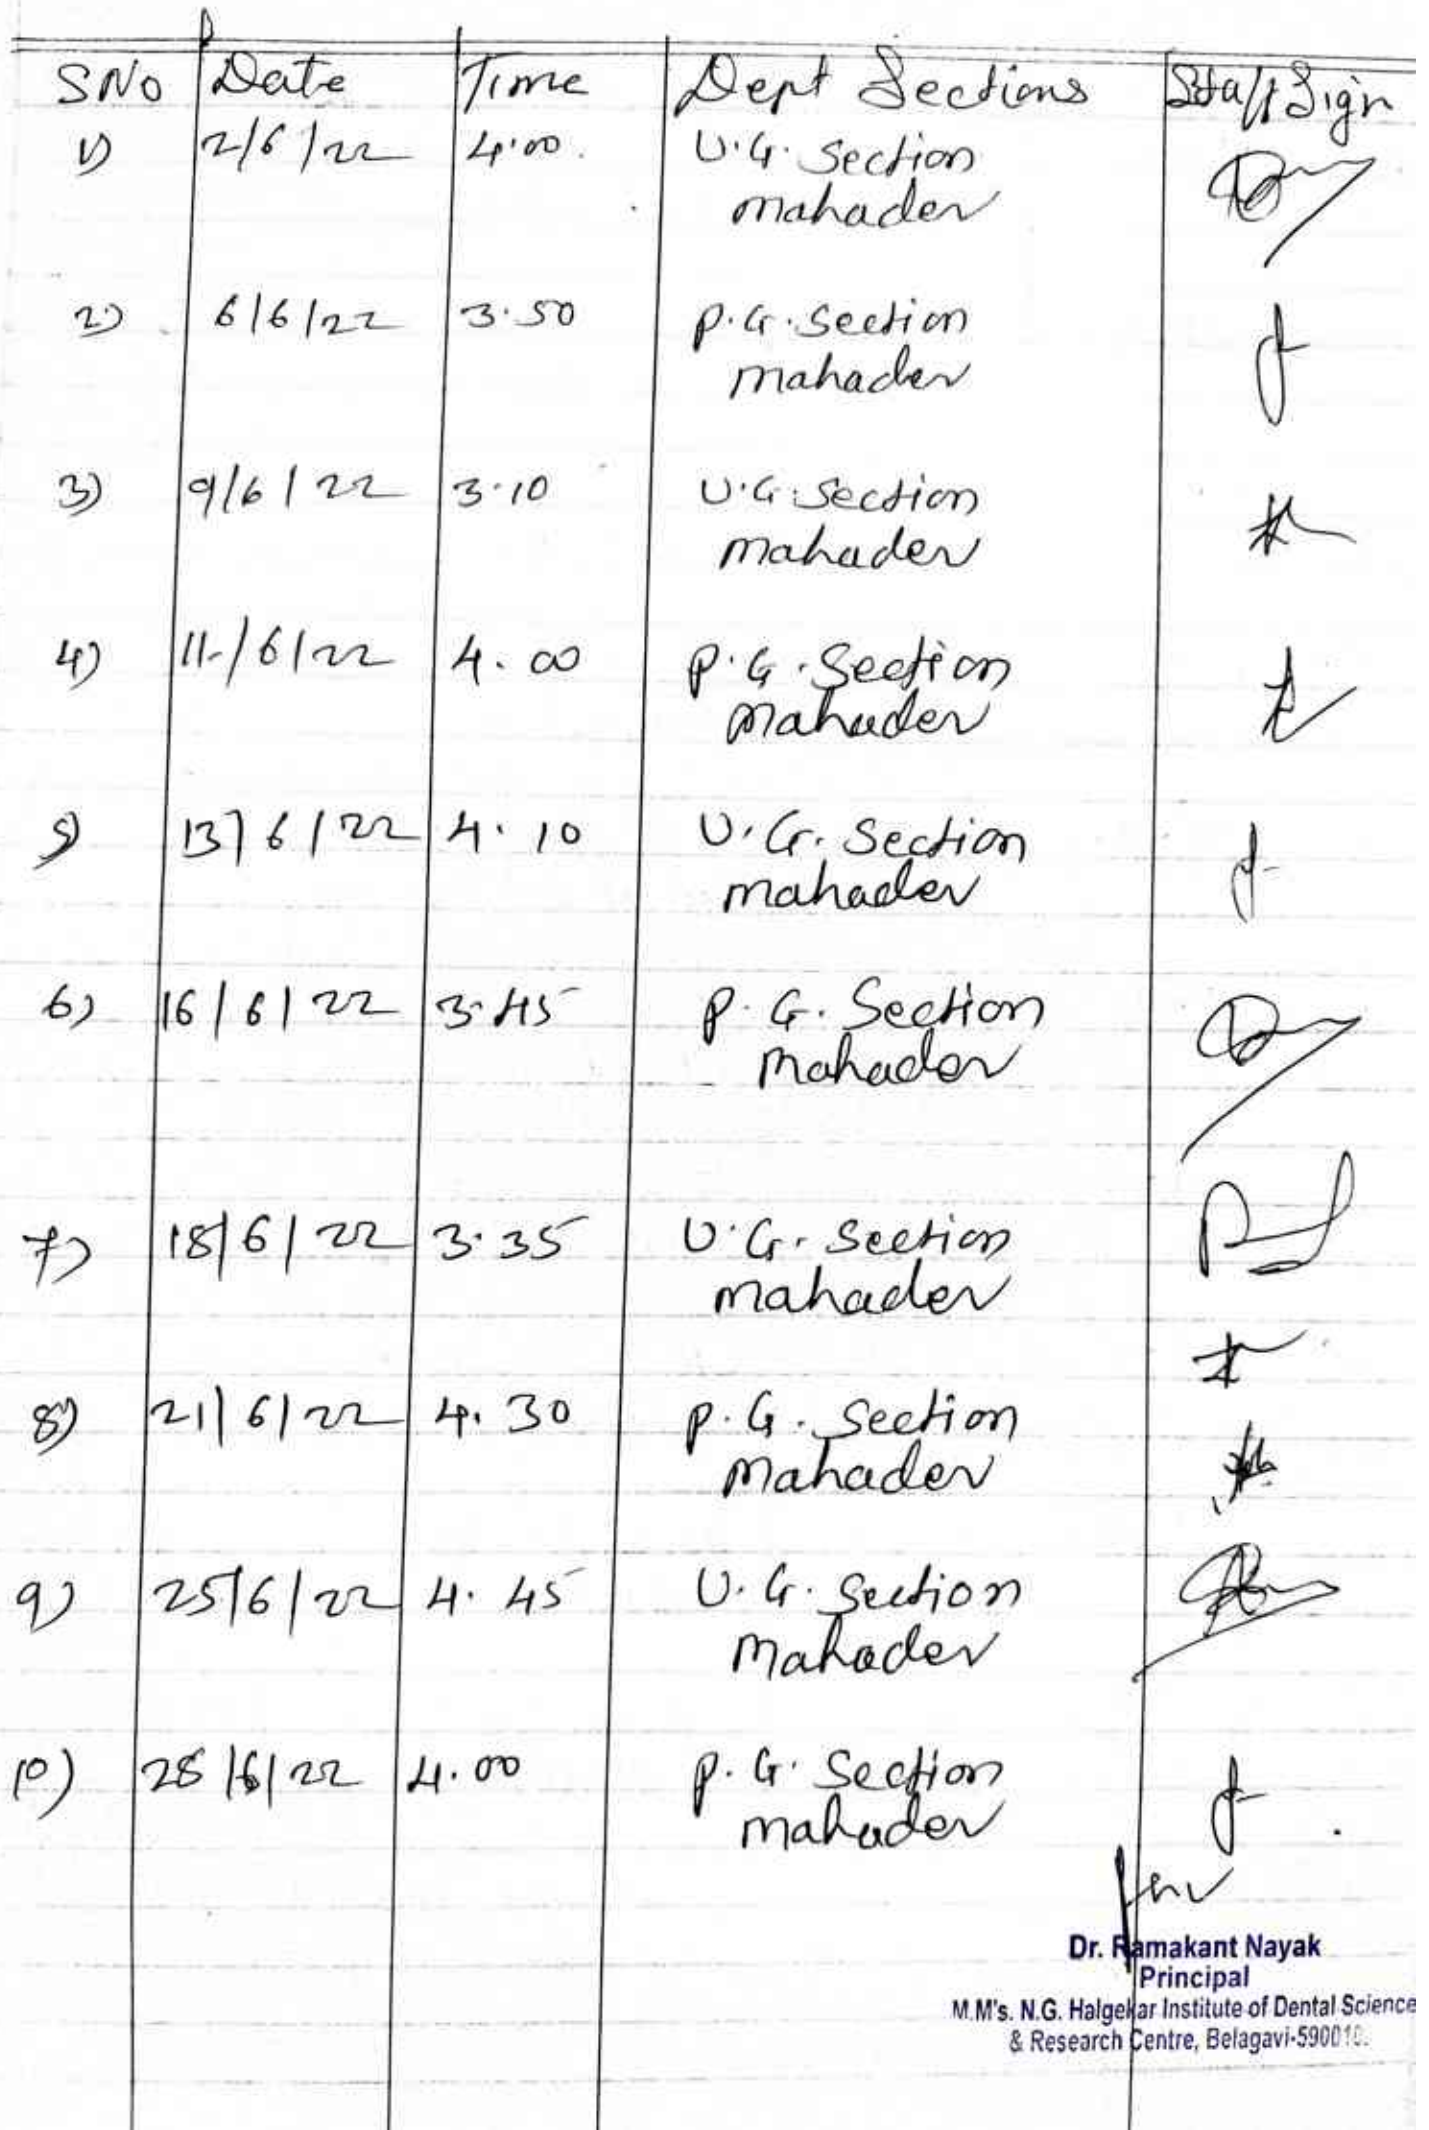 SNo Date Time Dept Sections Staff Sign
1) 2/6/22 4.00 U.G. Section
mahadev
2) 6/6/22 3.50 P.G. Section
mahadev
3) 9/6/22 3.10 U.G. Section
mahadev
4) 11/6/22 4.00 P.G. Section
mahadev
5) 13/6/22 4.10 U.G. Section
mahadev
6) 16/6/22 3.45 P.G. Section
mahadev
7) 18/6/22 3.35 U.G. Section
mahadev
8) 21/6/22 4.30 P.G. Section
mahadev
9) 25/6/22 4.45 U.G. Section
mahadev
10) 28/6/22 4.00 P.G. Section
mahadev
Dr. Ramakant Nayak
Principal
M.M's. N.G. Halgekar Institute of Dental Science
& Research Centre, Belagavi-590010.